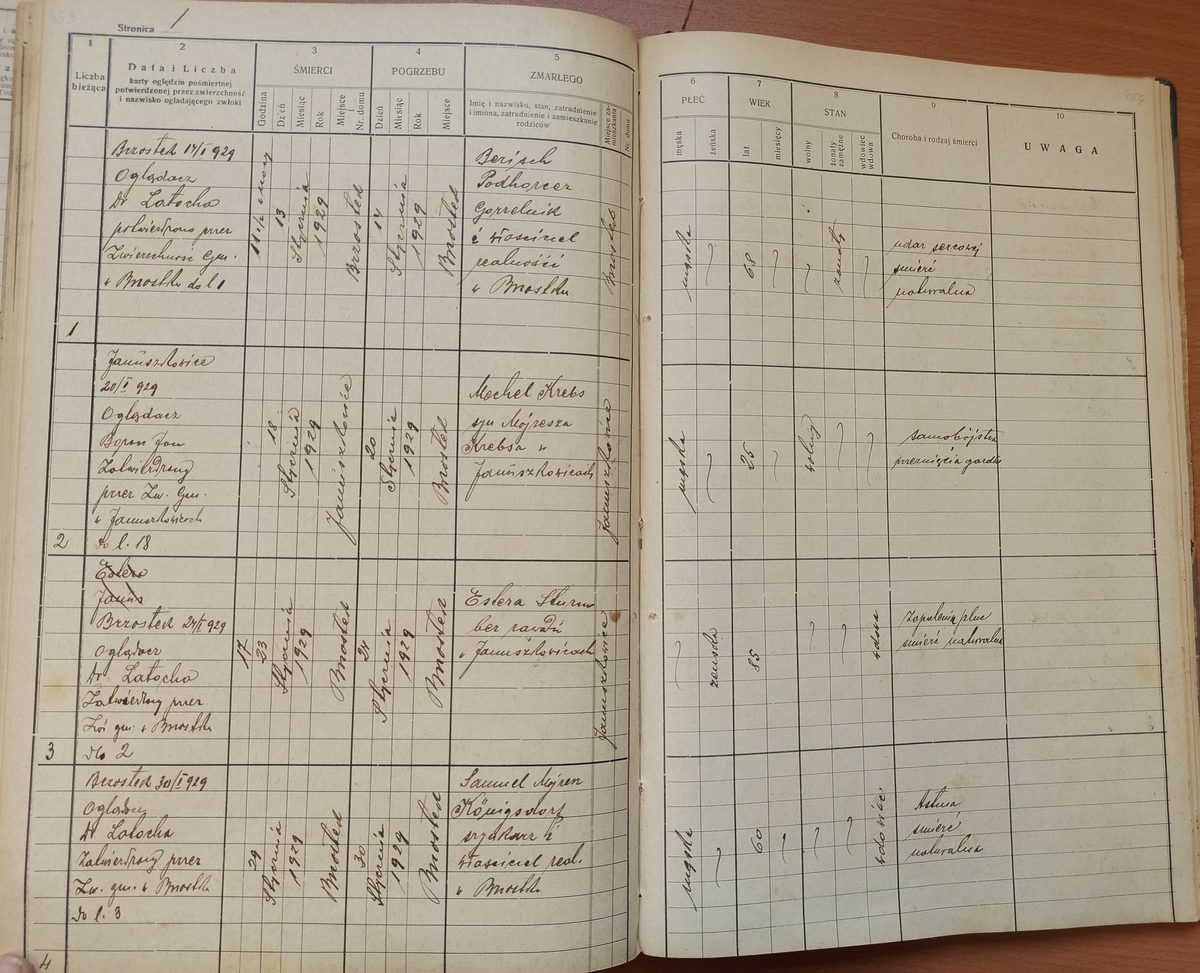 Stronica 1
1
2
3
4
5
Liczba bieżąca
Data i Liczba
karty oględzin pośmiertnej
potwierdzonej przez zwierzchność
i nazwisko oglądającego zwłoki
ŚMIERCI
Godzina
Dzień
Miesiąc
Rok
Miejsce i Nr. domu
POGRZEBU
Dzień
Miesiąc
Rok
Miejsce
ZMARŁEGO
Imię i nazwisko, stan, zatrudnienie
i imiona, zatrudnienie i zamieszkanie
rodziców
Miejsce zamieszkania
Nr. domu
6
7
8
9
10
PŁEĆ
męska
żeńska
WIEK
lat
miesięcy
STAN
wolny
żonaty
zamężne
wdowiec
wdowa
Choroba i rodzaj śmierci
UWAGA
454
1
Brzostek 14/I 929
Oglądacz
Dr Latocha
potwierdzono przez
Zwierzchność Gm.
w Brzostku do l 1
11 1/2 w nocy
13
Stycznia
1929
Brzostek
14
Stycznia
1929
Brzostek
Berisch
Podhorcer
Gorzelnik
i właściciel
realności
w Brzostku
Brzostek
męska
68
żonaty
udar sercowy
śmierć
naturalna
2
Januszkowice
20/I 929
Oglądacz
Baran Jan
Zatwierdzony
przez Zw. Gm.
w Januszkowicach
do l. 18
18
Stycznia
1929
Januszkowice
20
Stycznia
1929
Brzostek
Mechel Krebs
syn Mojżesza
Krebsa w
Januszkowicach
Januszkowice
męska
25
wolny
samobójstwo
przeznięcia gardła
3
Estera
Janus
Brzostek 24/I 929
Oglądacz
Dr Latocha
Zatwierdzony przez
Zwś gm. w Brzostku
Do 2
17
23
Stycznia
1929
Brzostek
24
Stycznia
1929
Brzostek
Estera Sturm
bez zawodu
w Januszkowicach
Januszkowice
żeńska
85
wdowa
Zapalenie płuc
śmierć naturalna
4
Brzostek 30/I 929
Oglądacz
Dr Latocha
Zatwierdzony przez
Zw. gm. w Brzostku
Do l. 3
29
Stycznia
1929
Brzostek
30
Stycznia
1929
Brzostek
Samuel Mojżesz
Königsdorf
szynkarz i
właściciel real.
w Brzostku
męska
60
wdowiec
Astma
śmierć
naturalna